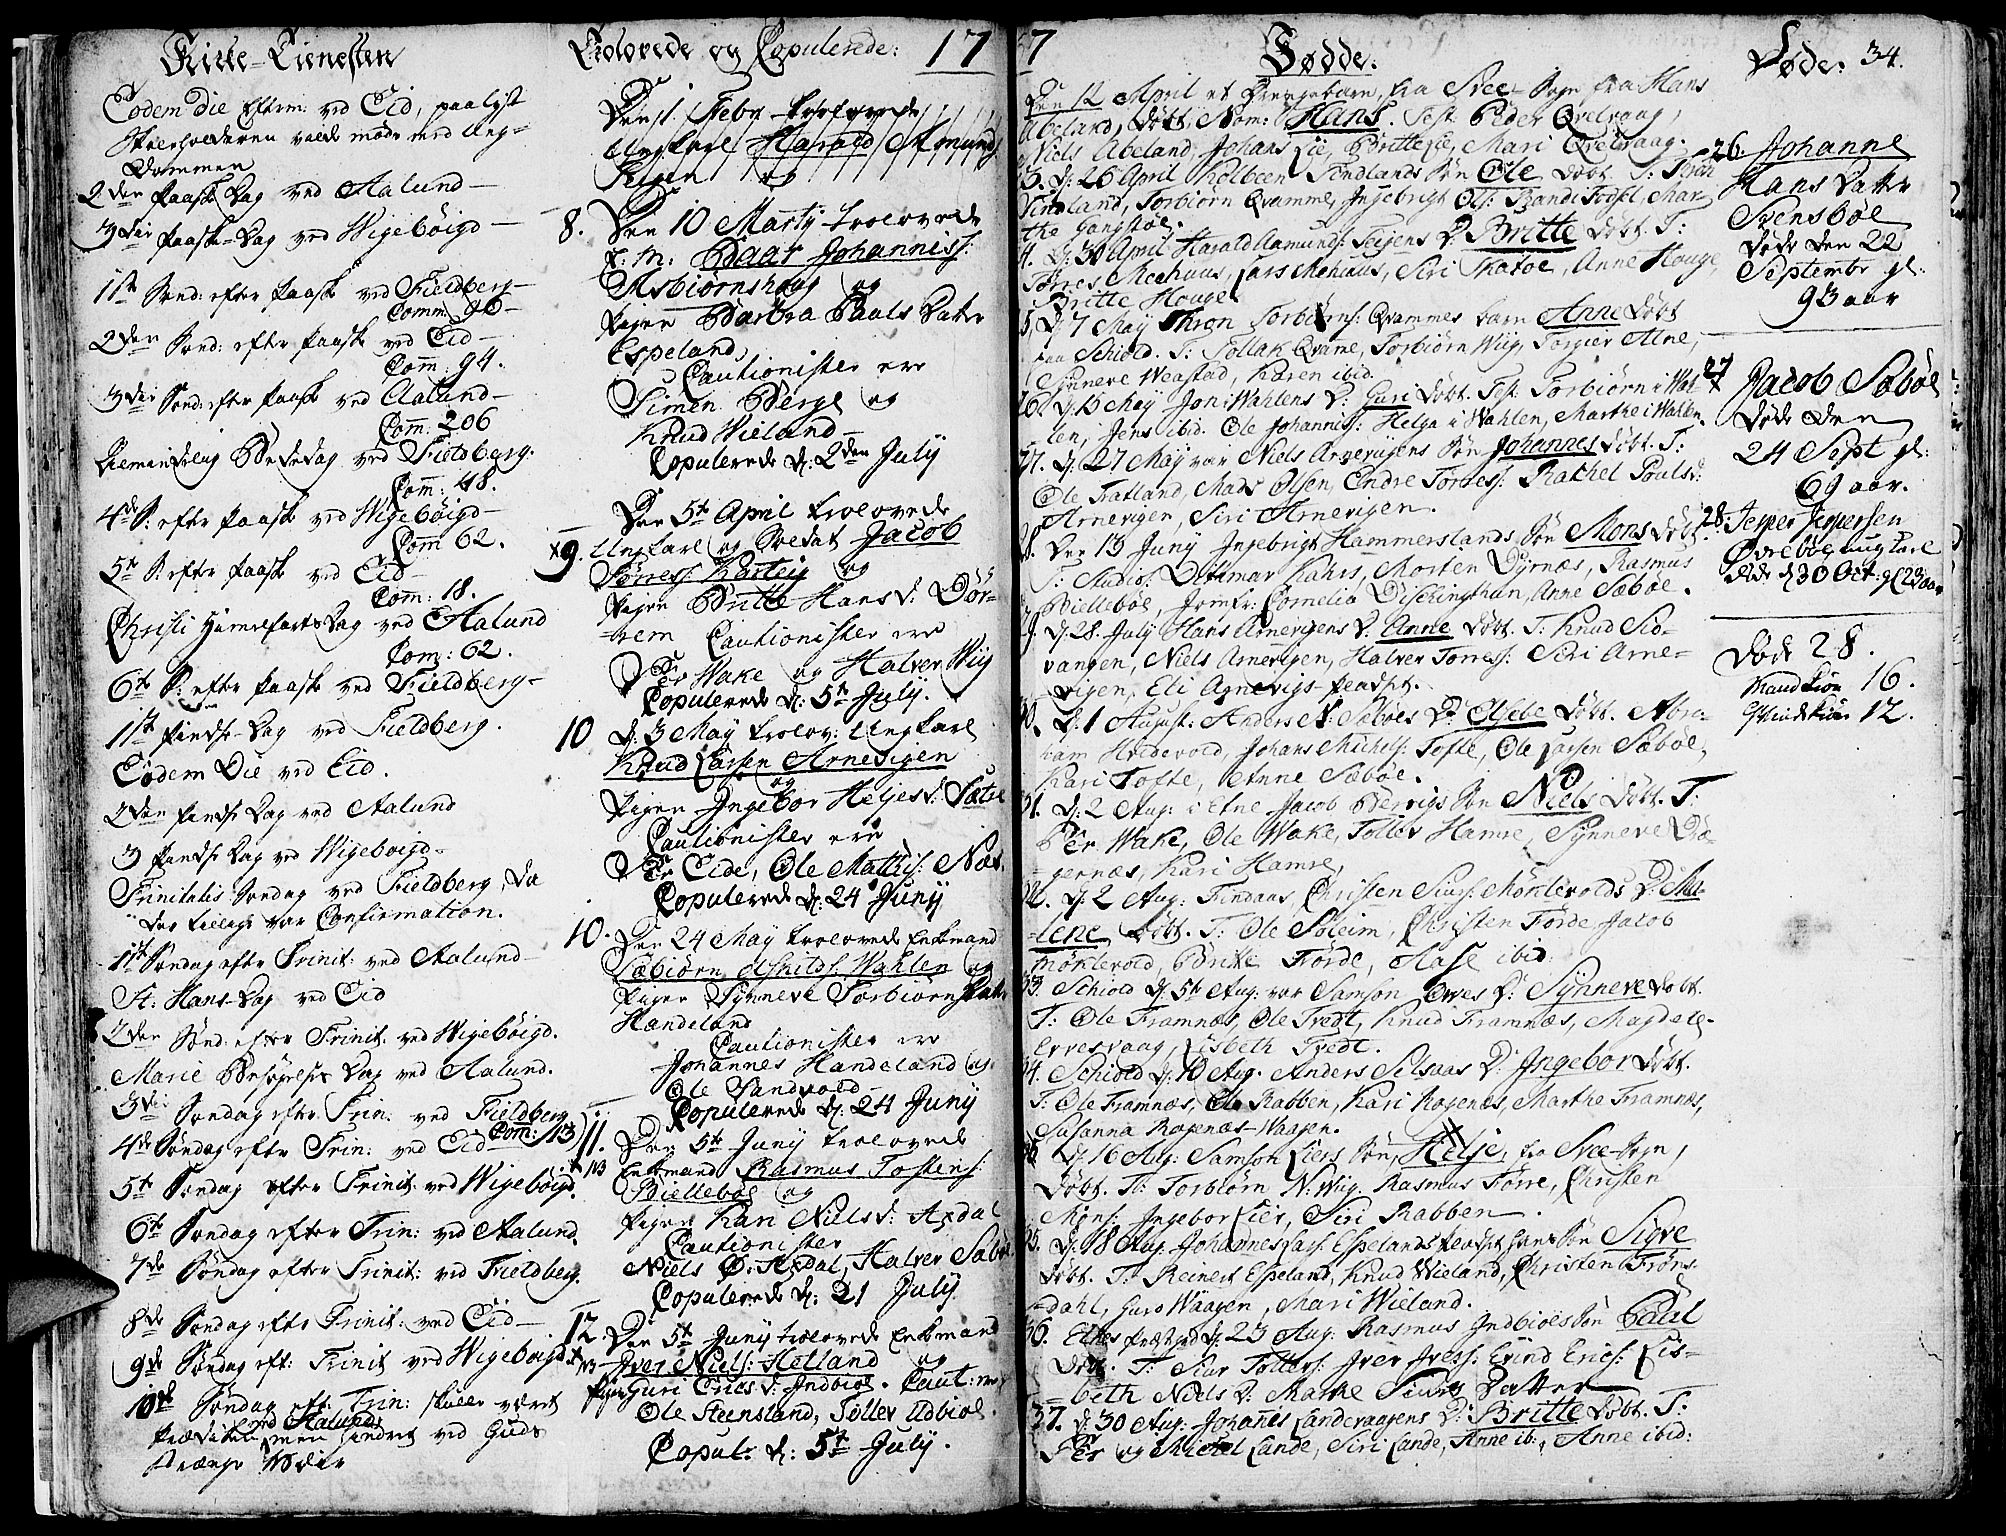 Kirke-Tienesten
Eodem Die Efterm: ved Eid, paalyst
ved Ung-
Dommen
2den Paaske Dag ved Aalund
3die Paaske-Dag ved Wigebøigd
1ste Sønd: efter Paaske ved Fieldberg
Comm 96
2den Sønd: efter Paaske ved Eid
Com: 94.
3die Sønd: efter Paaske ved Aalund
Com: 206
Almindelig Bededag ved Fieldberg.
Com: 48.
4de S: efter Paaske ved Wigebøigd
Com 62.
5te S: efter Paaske ved Eid
Com: 18.
Christi Himmelfarts Dag ved Aalund
Com: 62.
6te S: efter Paaske ved Fieldberg
1ste Pindse-Dag ved Fieldberg.
Eodem Die ved Eid.
2den Pindse Dag ved Aalund
3 Pindse Dag ved Wigebøigd
Trinitatis Søndag ved Fieldberg, da
der tillige var Confirmation.
1ste Søndag efter Trinit: ved Aalund
St. Hans-Dag ved Eid
2den Sønd: efter Trinit. ved Wigebøigd.
Mariæ Besøgelses Dag ved Aalund.
3die Søndag efter Trin: ved Fieldberg
Com: 113
4de Søndag efter Trin: ved Eid
5te Søndag efter Trinit: ved Wigebøigd.
6te Søndag efter Trin: ved Aalund.
7de Søndag efter Trinit: ved Fieldberg.
8de Søndag efter Trinit: ved Eid
9de Søndag eft: Trinit ved Wigebøigd.
10de Søndag eft: Trin: skulle været
Prædiken ved Aalund, men hindret ved Guds
strænge Veir
Trolovede og Copulerede: 17
Den 1. Febr trolovede
Ungkarl Harald Amunds:
Teigen og
8. Den 10 Martij trolovede
E. M. Baar Johanniss:
Asbiørnshaug og
Pigen Barbra Pauls Datter
Espeland
Cautionister ere
Simen Berge og
Knud Wieland
Copulerede d: 2den July
Den 5te April trolovede
9. Ungkarl og Soldat Jacob
Tørress: Kartvig og
Pigen Britte Hansd: Dør-
hem Cautionister ere
Per Wake og Halver Wiig
Copulerede d: 5te July.
10 d: 3 May trolov: Ungkarl
Knud Larsen Arnevigen
og
Pigen Ingebor Heljesd: Sætre
Cautionister ere
Per Eide, Ole Mathis: Næs.
Copulerede d: 24 Junij
10. Den 24 May trolovede Enkemand
Sæbiørn Asnilds: Wahlen og
Pigen Synneve Torbiørns Datt:
Handeland
Cautionister ere
Johannes Handeland og
Ole Sandvold
Copulerede d. 24 Junij
11. Den 5te Junij trolovede
Enkemand Rasmus Tostens:
Biellebøe og
Pigen Kari Nielsd: Axdal
Cautionister
Niels Ø: Axdal, Halver Sæbøe
Copulerede d: 21 July.
12. Den 5te Junij trolovede Enkemand
Iver Niels: Helland og
Pigen Guri Ericsd: Indbiøe. Caut: ere
Ole Steensland, Toller Udbiøe
Copul: d: 5te July.
7
Fødde.
Den 12 April et Drengebarn, fra Svee-Sogn fra Hans
Abeland, døbt, Nom: Hans. Test: Peder Qvelvaag,
Niels Abeland, Johans Lie, Britte Lie, Mari Qvelvaag.
3. d: 26 April Kolbeen Tindlands Søn Ole døbt. T:
Tindland, Torbiørn Qvamme, Ingebrigt Ols: Randi Tosdal, Mar-
the Gangstøe.
4. d: 30 April Harald Aamunds: Teigens D: Britte døbt. T:
Tørres Meehuus, Lars Mehuus, Siri Skaaoe, Anne Houge,
Britte Houge
5, d: 7 May Thron Torbiørns: Qvammes barn Anne døbt
paa Schiold. T: Tollak Qvame, Torbiørn Wiig, Torgier Alne,
Synneve Weastad, Karen ibid.
26 d: 15 May Jon: Wahlens D: Guri døbt. Test. Torbiørn i Wah-
len, Jens ibid. Ole Johannis: Helga i Wahlen, Marthe i Wahlen.
27. d: 27 May var Niels Arnevigens Søn Johannes døbt. T:
Ole Tratland, Mads Olsen, Endre Tørress: Rachel Poulsd:
Arnevigen, Siri Arnevigen.
28. Den 13 Junij Ingebrigt Hammerslands Søn Mons døbt.
T: Studios: Dithmar Kahrs, Morten Dyrnæs, Rasmus
Biellebøe, Jomfr: Cornelia Discingthun, Anne Sæbøe.
29. d: 28. July Hans Arnevigens D: Anne døbt. T: Knud Sio-
vangen, Niels Arnevigen, Halver Tørress: Siri Arne-
vigen, Eli Agnevigs-
30. d: 1 August: Anders N: Sæbøes D: Elsebe døbt. Abra-
ham Hvidevold, Johans Michels: Tofte, Ole Larsen Sæbøe,
Kari Tofte, Anne Sæbøe.
31. d: 2 Aug: i Etne Jacob Bervigs Søn Niels døbt. T:
Per Wake, Ole Wake, Toller Hamre, Synneve Dø-
gernæs, Kari Hamre,
32. d: 2 Aug: Findaas, Christen Siurs: Mørkevolds D: Ma-
lene døbt. T: Ole Søleim, Christen Førde Jacob
Mørkevold, Britte Førde, Aase ibid:
33. Schiold d: 5te Aug: var Samson Orves D: Synneve døbt.
T: Ole Framnæs, Ole Tvedt, Knud Framnæs, Magdele-
Ervesvaag, Lisbeth Tvedt.
34. Schiold d: 10 Aug. Anders Selsaas D: Ingebor døbt.
T: Ole Framnæs, Ole Rabben, Kari Rogenæs, Marthe Framnæs,
Susanna Rogenæs-Waagen.
d: 16 Aug: Samson Liers Søn, Helje, fra Svee-Sogn,
døbt. T: Torbiørn N: Wiig, Rasmus Tørre, Christen
Mons: Ingebor Lier, Siri Rabben.
35. d: 18 Aug. Johannes Lars: Espelands hans Søn Sigve
døbt. T: Reinert Espeland, Knud Wieland, Christen Frøns-
dahl, Guro Waagen, Mari Wieland.
36. Ethes Præstegd: d: 23 Aug: Rasmus Indbiøes Søn Paul
døbt. T: Siur Tollers: Iver Ivers: Erind Erics: Lis-
beth Niels D: Marthe Siurs Datter
37. d: 30 Aug: Johannes Landevaagens D: Britte døbt. T:
Per og Michel Lande, Siri Lande, Anne ib:, Anne ibid:
Døde. 34.
26 Johanne
Hans Datter
Svensbøe
døde den 22
Septembr gl:
93 aar
27 Jacob Sæbøe
døde den
24 Sept gl:
69 aar.
28. Jesper Jespersen
Øvrebøe ungkarl
døde d 30 Oct: gl 23 aar
Døde 28.
Mandkiøn 16.
Qvindekiøn 12.